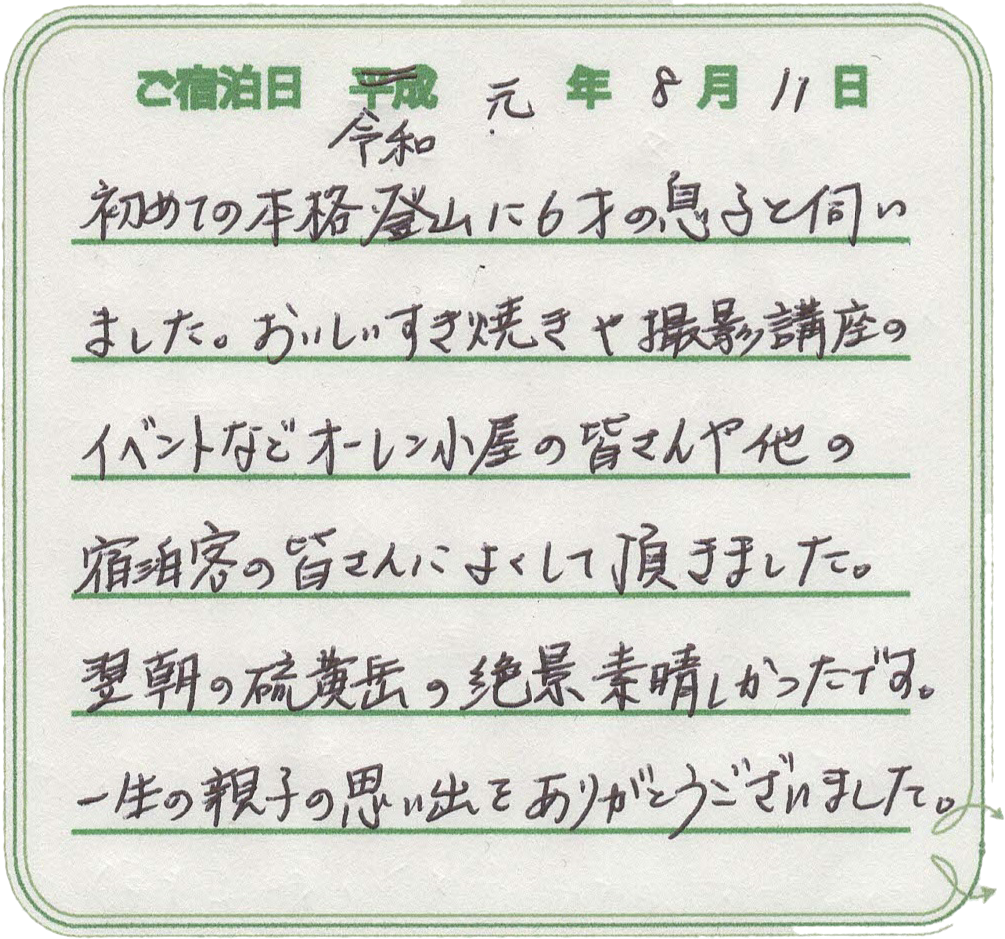 ご宿泊日 平成 元 年 8 月 11 日
令和
初めての本格登山に6才の息子と伺い
ました。おいしいすき焼きや撮影講座の
イベントなどオーレン小屋の皆さんや他の
宿泊客の皆さんによくして頂きました。
翌朝の硫黄岳の絶景素晴しかったです。
一生の親子の思い出をありがとうございました。